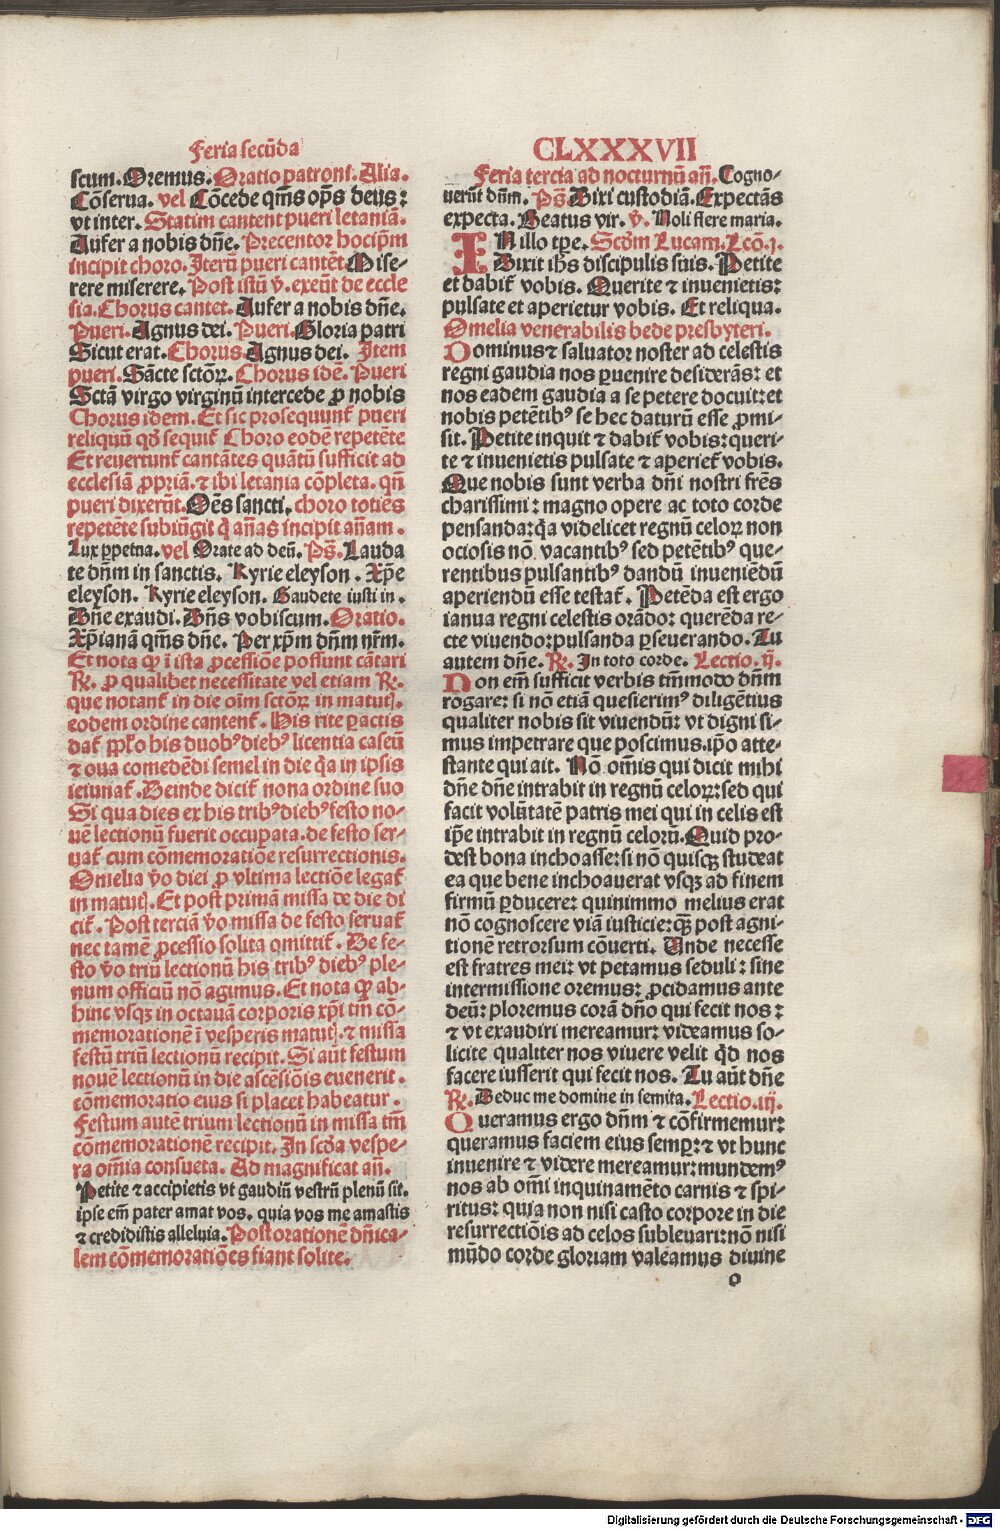 Feria secūda
scum. Oremus. Oratio patroni. Alia.
Cōserua. vel Cōcede qm̄s op̄s deus:
vt inter. Statim cantent pueri letaniā.
Aufer a nobis dn̄e. Precentor hocip̄m
incipit choro. Iterū pueri cantēt. Mise-
rere miserere. Post istū v̄. exeūt de eccle
sia. Chorus cantet. Aufer a nobis dn̄e.
Pueri. Agnus dei. Pueri. Gloria patri
Sicut erat. Chorus. Agnus dei. Item
pueri. Sācte sctōꝝ. Chorus idē. Pueri
Sctā virgo virginū intercede ꝓ nobis
Chorus idem. Et sic prosequunt̄ pueri
reliquū qd̄ sequit̄ Choro eodē repetēte
Et reuertunt̄ cantātes quātū sufficit ad
ecclesiā ꝓpriā. ⁊ ibi letania cōpleta. qn̄
pueri dixerūt. Oēs sancti. choro toties
repetēte subiūgit q̄ an̄as incipit an̄am.
Lux ꝑpetua. vel Orate ad deū. Ps̄. Lauda
te dn̄m in sanctis. Kyrie eleyson. Xp̄e
eleyson. Kyrie eleyson. Gaudete iusti in.
Dn̄e exaudi. Dn̄s vobiscum. Oratio.
Xp̄ianā qm̄s dn̄e. Per xp̄m dn̄m nr̄m.
Et nota ꝙ ī ista ꝓcessiōe possunt cātari
R̄. ꝓ qualibet necessitate vel etiam R̄.
que notant̄ in die oīm sctōꝝ in matuꝭ.
eodem ordine cantent̄. His rite ꝑactis
dat̄ pp̄lo his duobꝰ diebꝰ licentia caseū
⁊ oua comedēdi semel in die q̄a in ipsis
ieiunat̄. Deinde dicit̄ nona ordine suo
Si qua dies ex his tribꝰ diebꝰ festo no-
uē lectionū fuerit occupata. de festo ser-
uat̄ cum cōmemoratiōe resurrectionis.
Omelia v̄o diei ꝓ vltima lectiōe legat̄
in matuꝭ. Et post primā missa de die di
cit̄. Post terciā v̄o missa de festo seruat̄
nec tamē ꝓcessio solita omittit̄. De fe-
sto v̄o triū lectionū his tribꝰ diebꝰ ple-
num officiū nō agimus. Et nota ꝙ ab-
hinc vsqꝫ in octauā corporis xp̄i tm̄ cō-
memorationē ī vesperis matuꝭ. ⁊ missa
festū triū lectionū recipit. Si aūt festum
nouē lectionū in die ascēsiōis euenerit.
cōmemoratio eius si placet habeatur.
Festum autē trium lectionū in missa tm̄
cōmemorationē recipit. In scd̄a vespe-
ra om̄ia consueta. Ad magnificat an̄.
Petite ⁊ accipietis vt gaudiū vestrū plenū sit.
ipse em̄ pater amat vos. quia vos me amastis
⁊ credidistis alleluia. Post orationē dn̄ica-
lem cōmemoratiōes fiant solite.
CLXXXVII
Feria tercia ad nocturnū an̄. Cogno-
uerūt dn̄m. Ps̄. Dixi custodiā. Expectās
expecta. Beatus vir. v̄. Noli flere maria.
IN illo tp̄e. Scd̄m Lucam. Lcō. j.
Dixit ih̄s discipulis suis. Petite
et dabit̄ vobis. Querite ⁊ inuenietis:
pulsate et aperietur vobis. Et reliqua.
Omelia venerabilis bede presbyteri.
Dominus ⁊ saluator noster ad celestis
regni gaudia nos ꝑuenire desiderās: et
nos eadem gaudia a se petere docuit: et
nobis petētibꝰ se hec daturū esse ꝓmi-
sit. Petite inquit ⁊ dabit̄ vobis: queri-
te ⁊ inuenietis pulsate ⁊ aperiet̄ vobis.
Que nobis sunt verba dn̄i nostri fr̄es
charissimi: magno opere ac toto corde
pensanda: q̄a videlicet regnū celoꝝ non
ociosis nō vacantibꝰ sed petētibꝰ que-
rentibus pulsantibꝰ dandū inueniēdū
aperiendū esse testat̄. Petēda est ergo
ianua regni celestis orādo: querēda re-
cte viuendo: pulsanda ꝑseuerando. Tu
autem dn̄e. R̄. In toto corde. Lectio. ij.
Non em̄ sufficit verbis tm̄modo dn̄m
rogare: si nō etiā quesierimꝰ diligētius
qualiter nobis sit viuendū: vt digni si-
mus impetrare que poscimus. ip̄o atte-
stante qui ait. Nō om̄is qui dicit mihi
dn̄e dn̄e intrabit in regnū celoꝝ: sed qui
facit volūtatē patris mei qui in celis est
ip̄e intrabit in regnū celorū. Quid pro-
dest bona inchoasse: si nō quisqꝫ studeat
ea que bene inchoauerat vsqꝫ ad finem
firmū ꝑducere: quinimmo melius erat
nō cognoscere viā iusticie: qꝫ post agni-
tionē retrorsum cōuerti. Unde necesse
est fratres mei: vt petamus seduli: sine
intermissione oremus: ꝓcidamus ante
deū: ploremus corā dn̄o qui fecit nos:
⁊ vt exaudiri mereamur: videamus so-
licite qualiter nos viuere velit qd̄ nos
facere iusserit qui fecit nos. Tu aūt dn̄e
R̄. Deduc me domine in semita. Lectio. iij.
Queramus ergo dn̄m ⁊ cōfirmemur:
queramus faciem eius semꝑ: ⁊ vt hunc
inuenire ⁊ videre mereamur: mundemꝰ
nos ab om̄i inquinamēto carnis ⁊ spi-
ritus: quia non nisi casto corpore in die
resurrectiōis ad celos subleuari: nō nisi
mūdo corde gloriam valeamus diuine
o
Digitalisierung gefördert durch die Deutsche Forschungsgemeinschaft - DFG